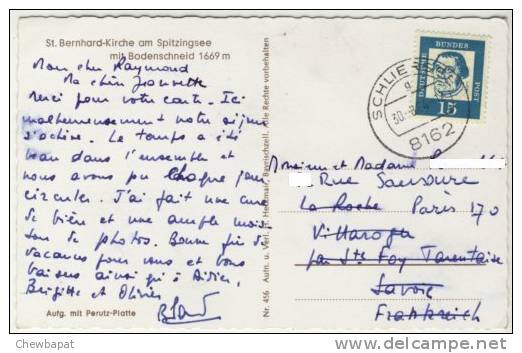 St. Bernhard-Kirche am Spitzingsee
mit Bodenschneid 1669 m
Mon cher Raymond
Ma chère Jeannette
Merci pour votre carte. Ici
malheureusement notre séjour
s'achève. Le temps a été
beau dans l'ensemble et
nous avons pu chaque jour
circuler. J'ai fait une cure
de bière et une ample mois
son de photos. Bonne fin de
vacances pour vous et bons
baisers ainsi qu'à Didier,
Brigitte et Olivier
Aufg. mit Perutz-Platte
Nr. 456 Aufn. u. Verl. H. Heckmair, Bayrischzell. Alle Rechte vorbehalten
SCHLIERSEE
8162
DEUTSCHE
BUNDES
POST
15
Monsieur et Madame
Rue Saussure
La Roche Paris 17O
Villaroger
par Ste Foy Tarentaise
Savoie
Frankreich
© Chewbapat
http://www.delcampe.net